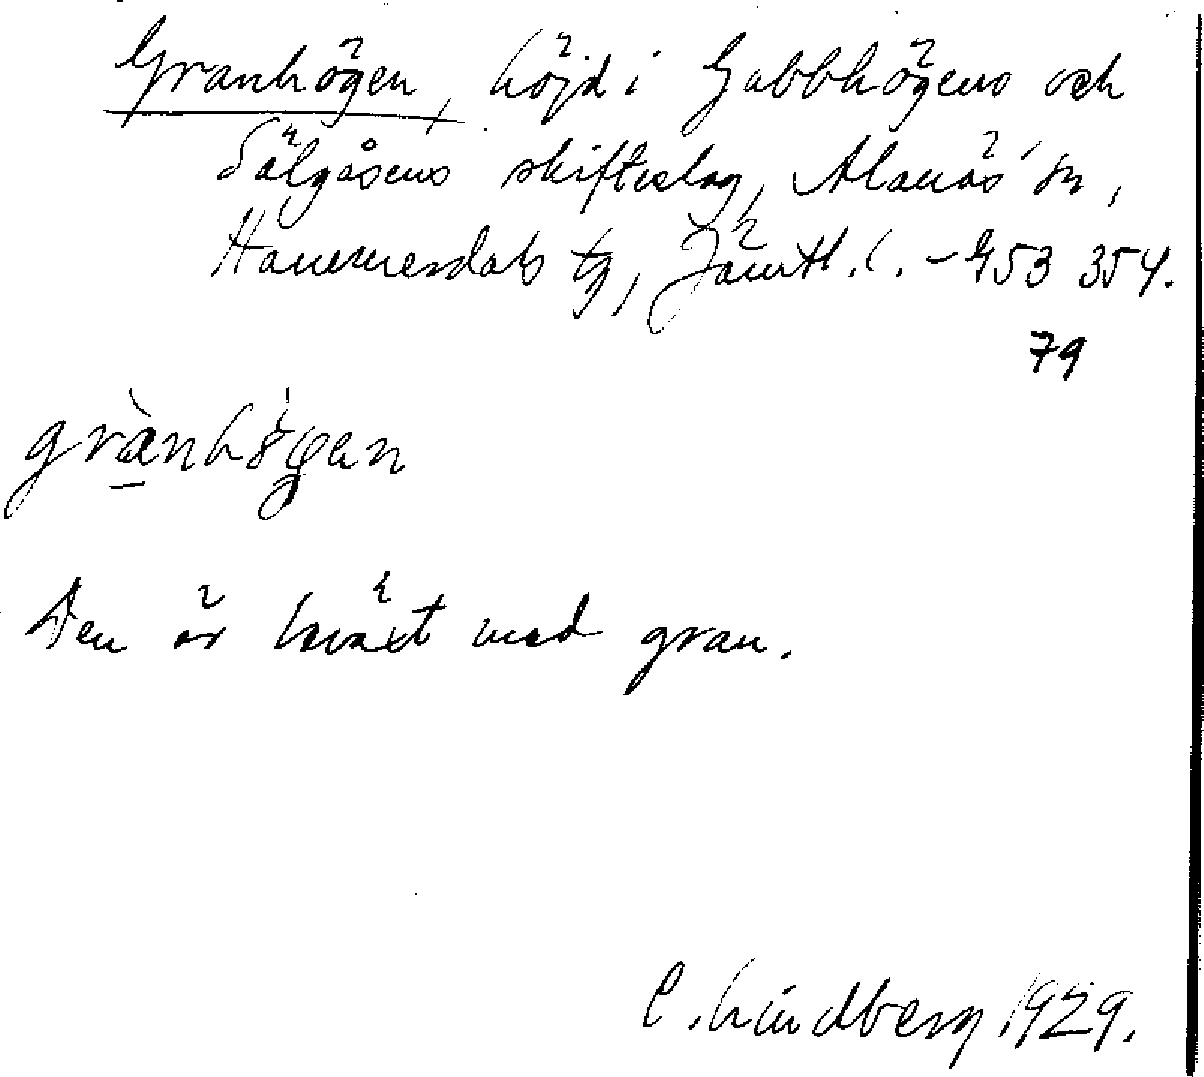 Granhögen, höjd i Gubbhögens och
Sälgåsens skifteslag, Alanäs sn,
Hammerdals tg, Jämtl. l. - 453 354.
79
grànhö̀gen
Den är beväxt med gran.
C. Lindberg 1929.